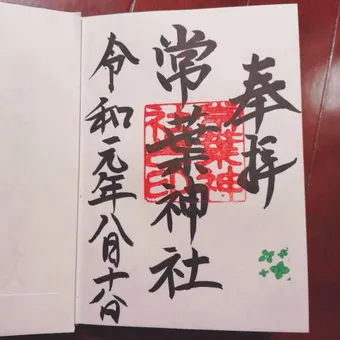 奉拝
常葉神社
常葉神社印
令和元年八月十八日